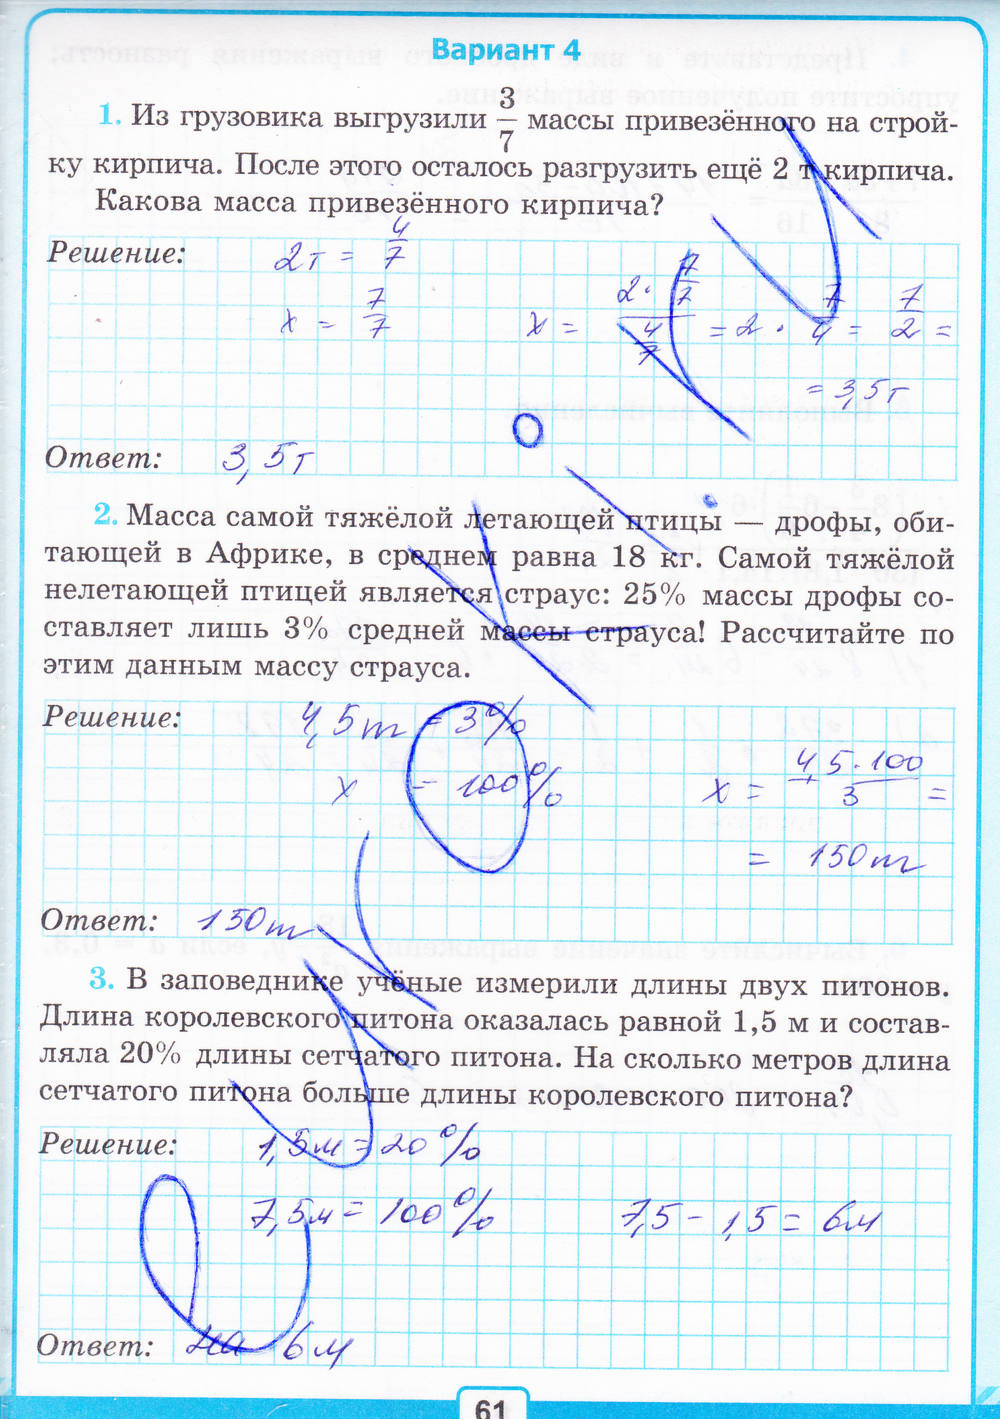 Вариант 4
1. Из грузовика выгрузили 3/7 массы привезённого на строй-
ку кирпича. После этого осталось разгрузить ещё 2 т кирпича.
Какова масса привезённого кирпича?
Решение: 2т = 4/7
x = 7/7 x = (2 · 7/7)/(4/7) = 2 · 7/4 = 7/2 =
= 3,5т
Ответ: 3,5т
2. Масса самой тяжёлой летающей птицы — дрофы, оби-
тающей в Африке, в среднем равна 18 кг. Самой тяжёлой
нелетающей птицей является страус: 25% массы дрофы со-
ставляет лишь 3% средней массы страуса! Рассчитайте по
этим данным массу страуса.
Решение: 4,5т = 3%
x = 100% x = (4,5 · 100)/3 =
= 150т
Ответ: 150т
3. В заповеднике учёные измерили длины двух питонов.
Длина королевского питона оказалась равной 1,5 м и состав-
ляла 20% длины сетчатого питона. На сколько метров длина
сетчатого питона больше длины королевского питона?
Решение: 1,5м = 20%
7,5м = 100% 7,5 - 1,5 = 6м
Ответ: на 6м
61